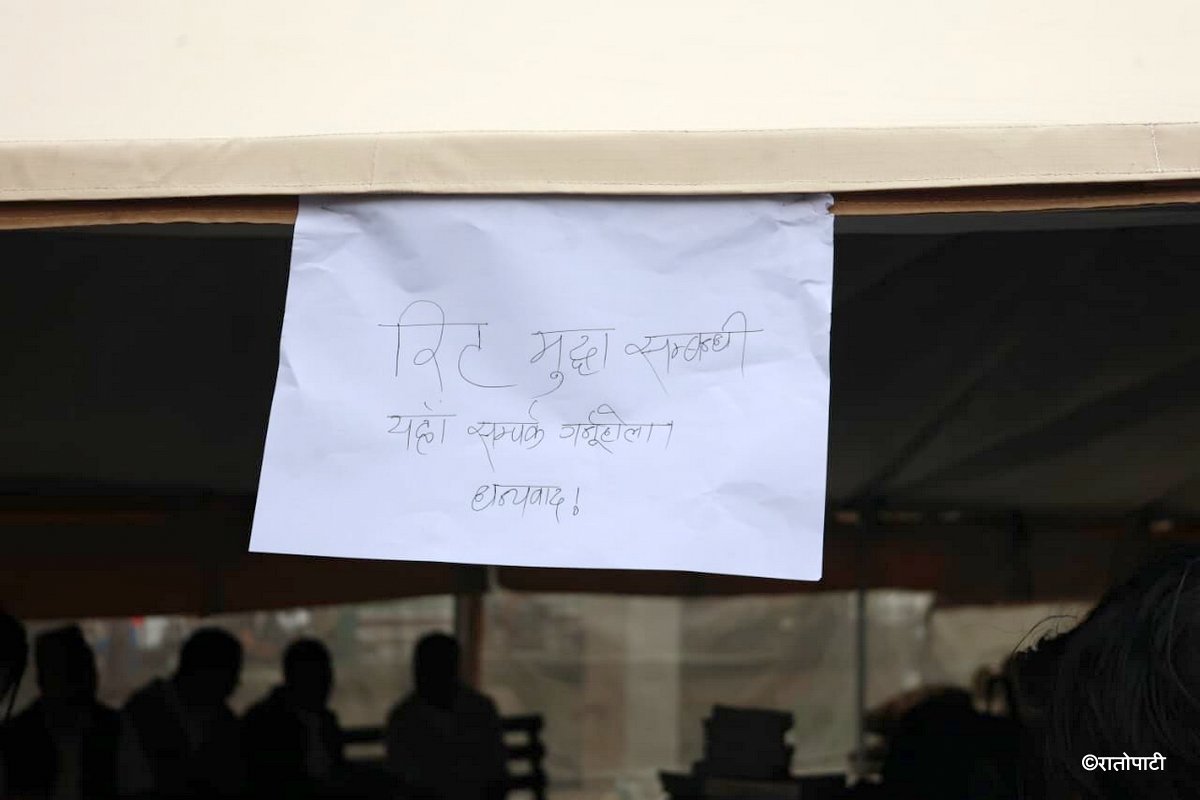 रिट मुद्दा सम्बन्धी
यहाँ सम्पर्क गर्नुहोला।
धन्यवाद!
©रातोपाटी